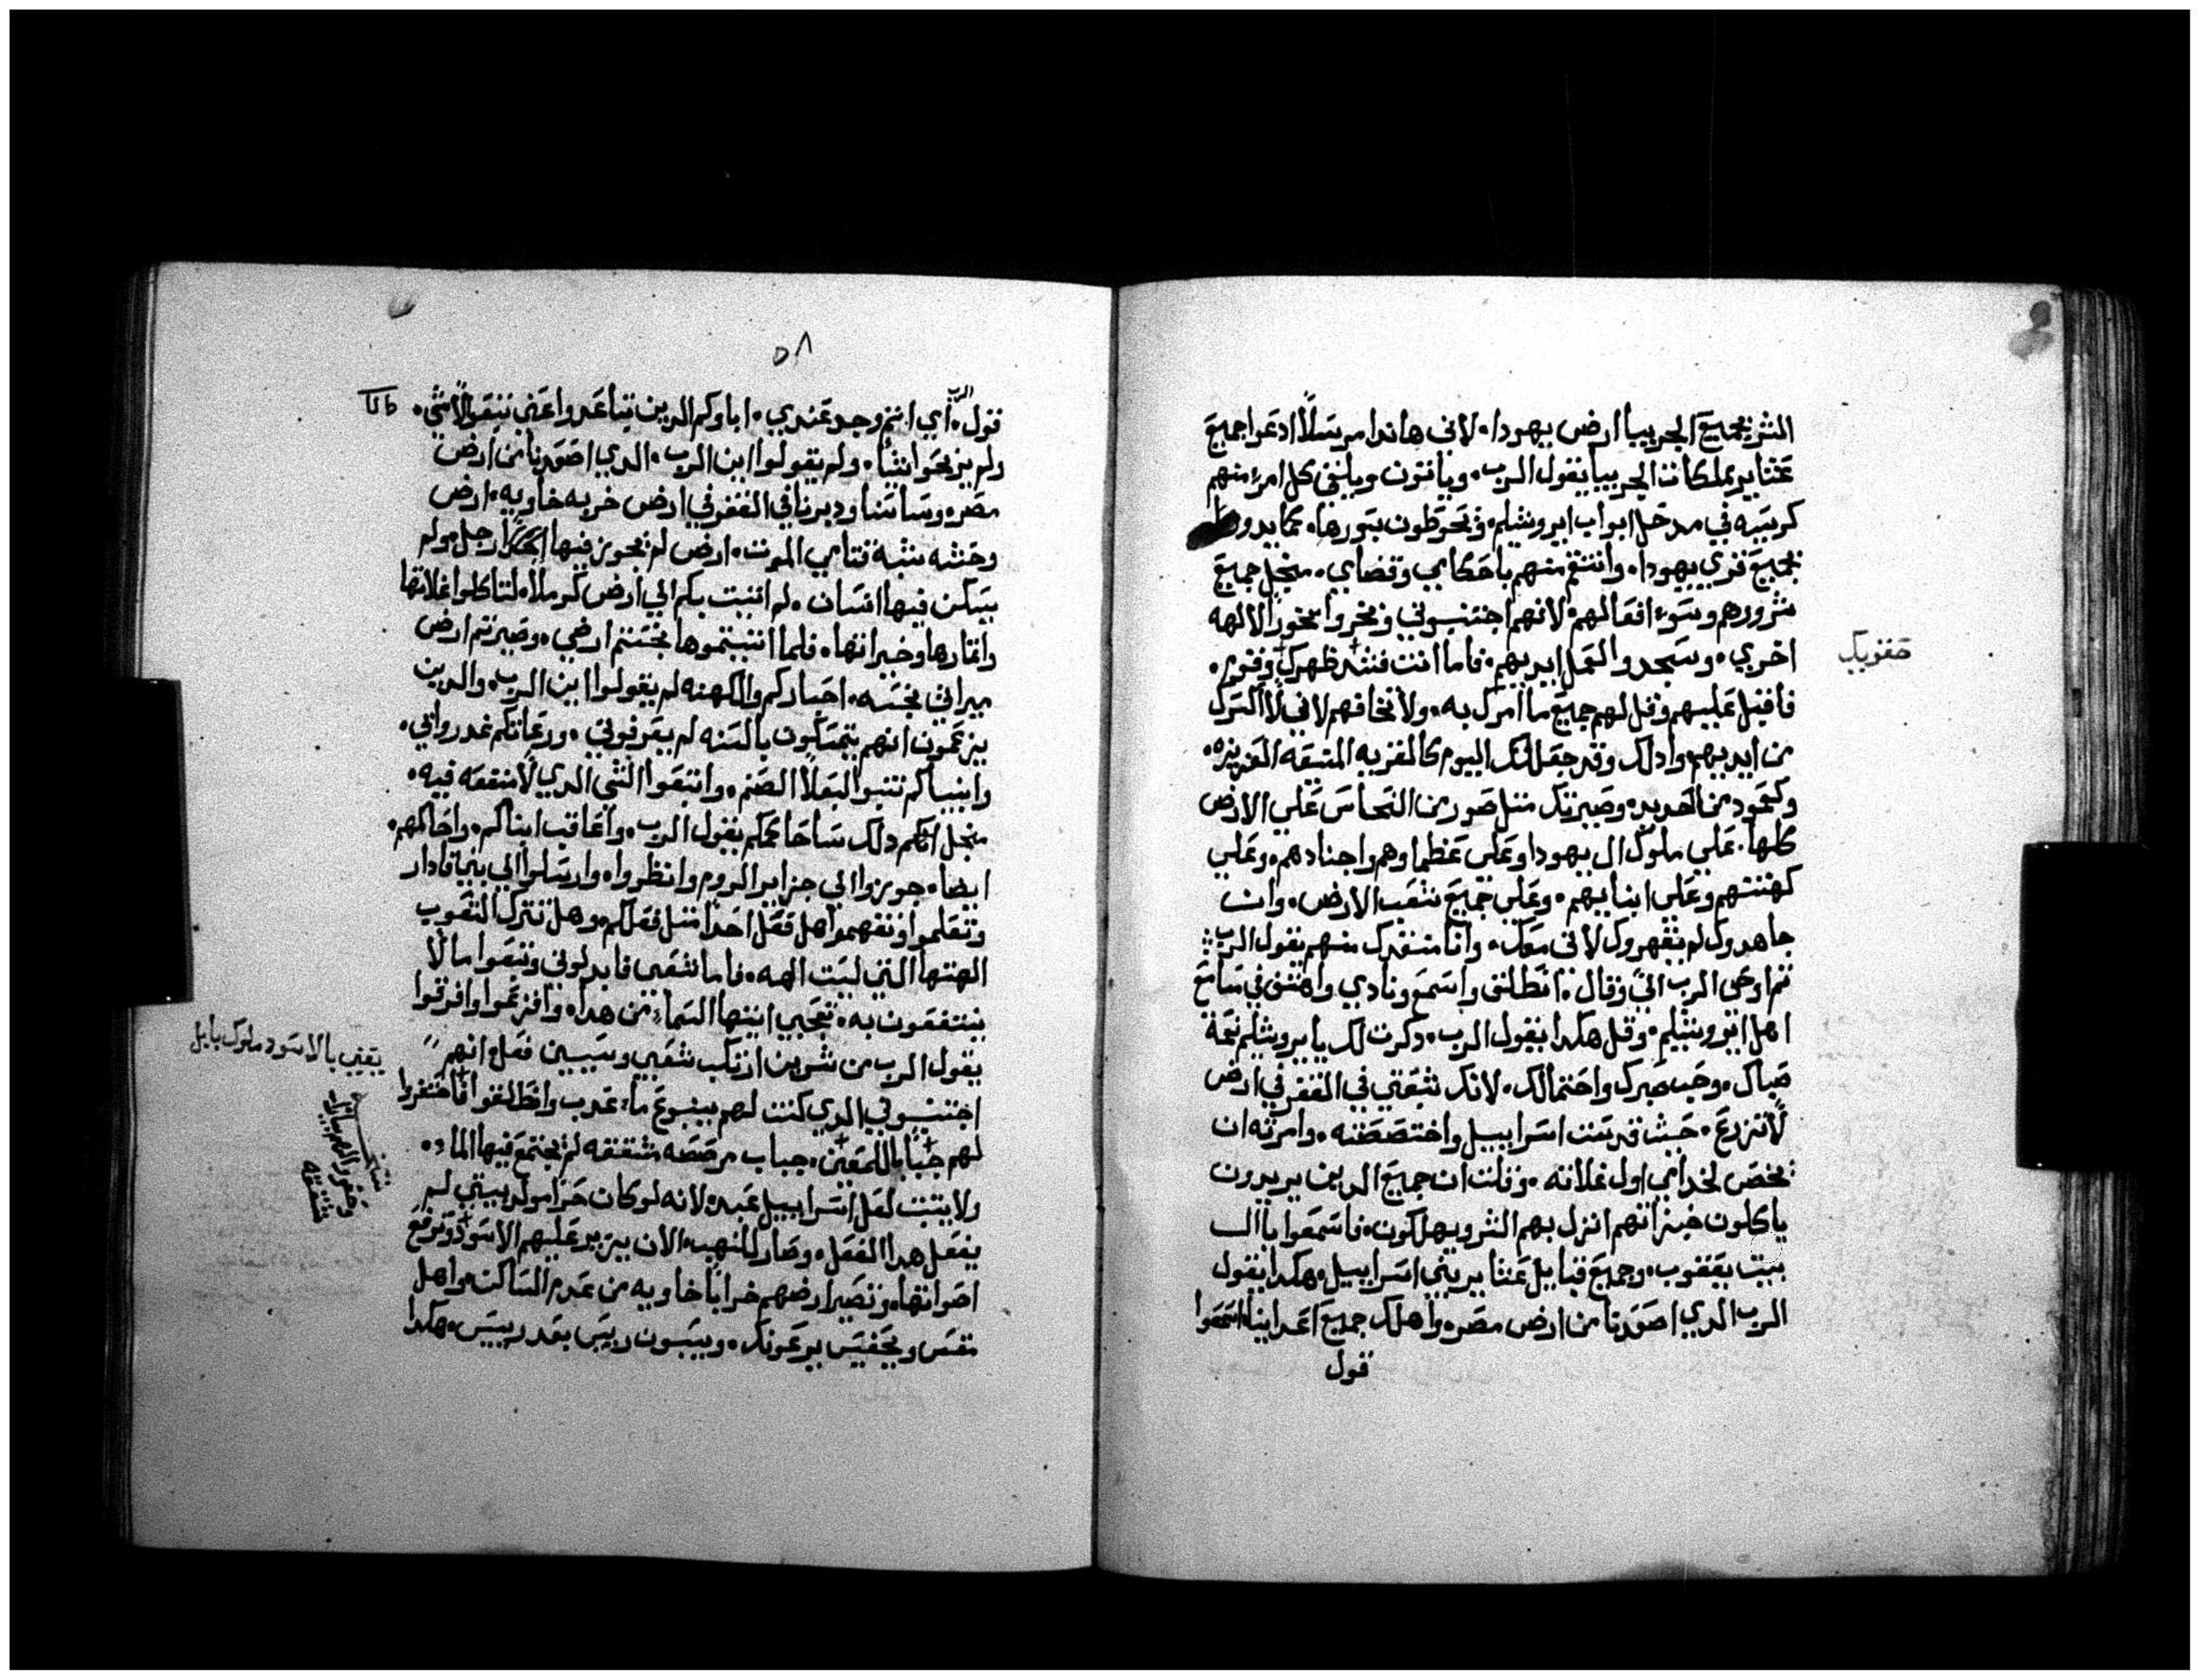 الشر بجميع الجربيا ارض يهودا. لاني هاندا مرسلاً ادعوا جميع
عشاير مملكات الجربيا يقول الرب. وياتون ويلقي كل امرء منهم
كرسيه في مدخل ابواب ايروشليم. وتحوطون بسورها. كما يدوروا
بجميع قري يهودا. وانتقم منهم باحكامي وقضاي. منجل جميع
شرورهم وسوء افعالهم. لانهم اجتنبوني وبخروا بخورًا لالهه
اخري. وسجدوا لعمل ايديهم. فاما انت فشد ظهرك وقوم.
حقويك
فاقبل عليهم وقل لهم جميع ما امرك به. ولا تخافهم لاني لا اتركك
من ايديهم وادلك وقد جعلتك اليوم كالقريه المنيعه العزيزه.
وكعمود من الحديد. وصيرتك مثل صور من النحاس علي الارض
كلها. علي ملوك ال يهودا وعلي عظماوهم واجنادهم. وعلي
كهنتهم وعلي انبيايهم. وعلي جميع شعب الارض. وان
جاهدوك لم يقهروك لاني معك. وانا منقدك منهم يقول الرب
ثم اوحي الرب اليّ وقال. انطلق واسمع ونادي واهتف في مسامع
اهل ايروشليم. وقل هكدا يقول الرب. دكرت لك يا يروشليم نعمة
صباك. وحب صبرك واحتمالك. لانك تبعتي في القفر في ارض
لاً تزرع. حيث قدست اسراييل واختصصته. وامرته ان
يخص لخدامي اول غلاته. وقلت ان جميع الدين يريدون
ياكلون خبزانهم انزل بهم الشر ويهلكون. فاسمعوا يا ال
بيت يعقوب. وجميع قبايل عشاير بني اسراييل. هكدا يقول
الرب الدي اصعدنا من ارض مصر. واهلك جميع اعداينا. اسمعوا
قول
٥٨
قول الرب. اي اثم وجد عندي. اباوكم الدين تباعدوا عني تبعوا لاشي.
ولم يرتجوا شيًا. ولم يقولوا اين الرب. الدي اصعدنا من ارض
مصر. وساسنا ودبرنا في القفر في ارض خربه خاويه. ارض
وحشه شبه فتامي الموت. ارض لم يجوز فيها رجل. ولم
يسكن فيها انسان. لم اتيت بكم الي ارض كرملا. لتاكلوا غلاتها
واثمارها وخيراتها. فلما اتيتموها نجستم ارضي. وصيرتم ارض
ميراثي نجسه. احباركم والكهنه لم يقولوا اين الرب. والدين
يزعمون انهم يتمسكون بالسنه لم يعرفوني. ورعاتكم غدروا بي.
وانبياكم تنبوا لبعلا الصنم. واتبعوا الشي الدي لا منفعه فيه.
منجل دلك ساحاكمكم يقول الرب. واعاقب ابناكم. واحاكمهم.
ايضا. جوزوا الي جزاير الروم وانظروا. وارسلوا الي بني قادار
وتعلموا وتفهموا هل فعل احدًا مثل فعلكم. وهل تترك الشعوب
الهتها التي ليست الهه. فاما شعبي فابدلوني وتبعوا ما لا
ينتفعون به. تعجبي ايتها السماء من هدا. وافزعوا وافرقوا
يقول الرب من شرين ارتكب شعبي وسيبين فعل انهم
اجتنبوني الدي كنت لهم ينبوع ماء عدب. وانطلقوا فاحتفروا
لهم جبًابا للمعين. جباب مرصصه مشققه لم يجتمع فيها الماء.
ولا يتبت لعل اسراييل عبد. لانه لو كان حرًا مولد بيتي لم
يفعل هدا الفعل. وصار للنهب. الان يزير عليهم الاسود وترفع
اصواتها. وتصير ارضهم خرابًا خاويه من عدم الساكن. واهل
منفس وتحفيس يرعونك. ويسبون رييس بعد رييس. هكدا
يعني بالاسود ملوك بابل